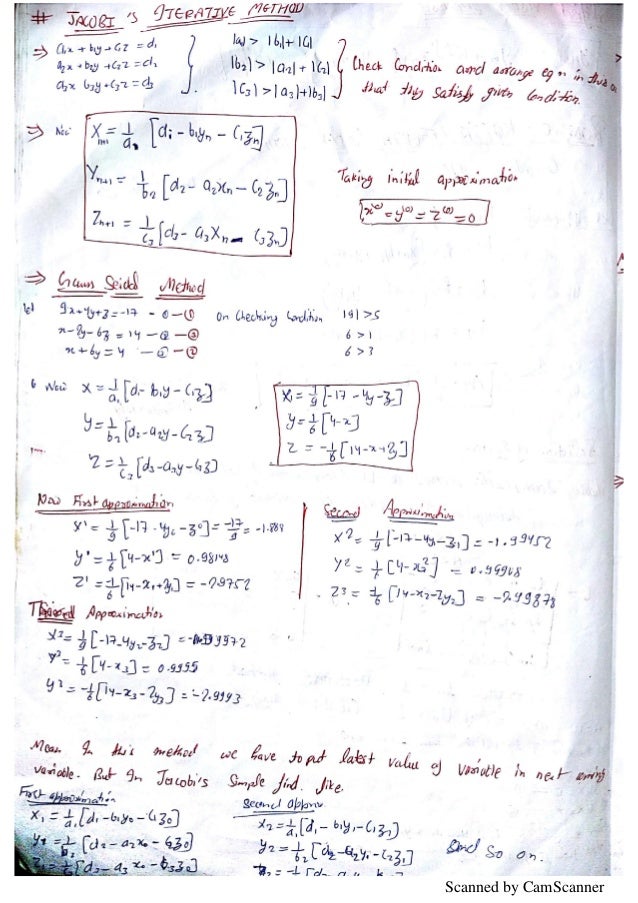 # JACOBI'S ITERATIVE METHOD
⇒ a₁x + b₁y + c₁z = d₁
a₂x + b₂y + c₂z = d₂
a₃x b₃y + c₃z = d₃
|a₁| > |b₁| + |c₁|
|b₂| > |a₂| + |c₂|
|c₃| > |a₃| + |b₃|
Check condition and arrange eqn in
that they satisfy given condition.
⇒ Now
Xₙ₊₁ = 1/a₁ [d₁ - b₁yₙ - c₁zₙ]
Yₙ₊₁ = 1/b₂ [d₂ - a₂xₙ - c₂zₙ]
Zₙ₊₁ = 1/c₃ [d₃ - a₃Xₙ - c₃zₙ]
Taking initial approximation
x⁽⁰⁾ = y⁽⁰⁾ = z⁽⁰⁾ = 0
⇒ Gauss Seidel Method
let 9x + 4y + z = -17 - ① On Checking Condition |9| > 5
x - 2y - 6z = 14 - ③ 6 > 1
x + 6y = 4 - ② 6 > 3
Now x = 1/a₁ [d₁ - b₁y - c₁z]
y = 1/b₂ [d₂ - a₂y - c₂z]
z = 1/c₃ [d₃ - a₃y - z]
X₁ = 1/9 [-17 - 4y - z]
y = 1/6 [4 - x]
z = -1/6 [14 - x + z]
Now First approximation
x¹ = 1/9 [-17 - 4y₀ - z⁰] = -17/9 = -1.888
y¹ = 1/6 [4 - x¹] = 0.98148
z¹ = -1/6 [14 - x₁ + y₁] = -2.9752
Second Approximation
x² = 1/9 [-17 - 4y₁ - z₁] = -1.99452
y² = 1/6 [4 - x²] = 0.99908
z³ = -1/6 [14 - x₂ - 2y₂] = -2.99878
Third Approximation
x³ = 1/9 [-17 - 4y₂ - z₂] = 9972
y³ = 1/6 [4 - x₃] = 0.9995
y³ = -1/6 [14 - x₃ - 2y₃] = -2.9993
Mean In this method we have to put latest value of variable in next coming
variable. But In Jacobi's Simple find. like.
First approximation
x₁ = 1/a₁ [d₁ - b₁y₀ - c₁z₀]
y₁ = 1/b₂ [d₂ - a₂x₀ - c₂z₀]
z₁ = 1/c₃ [d₃ - a₃x₀ - b₃z₀]
Second Approx
x₂ = 1/a₁ [d₁ - b₁y₁ - c₁z₁]
y₂ = 1/b₂ [d₂ - a₂y₁ - c₂z₁]
And so on.
Scanned by CamScanner